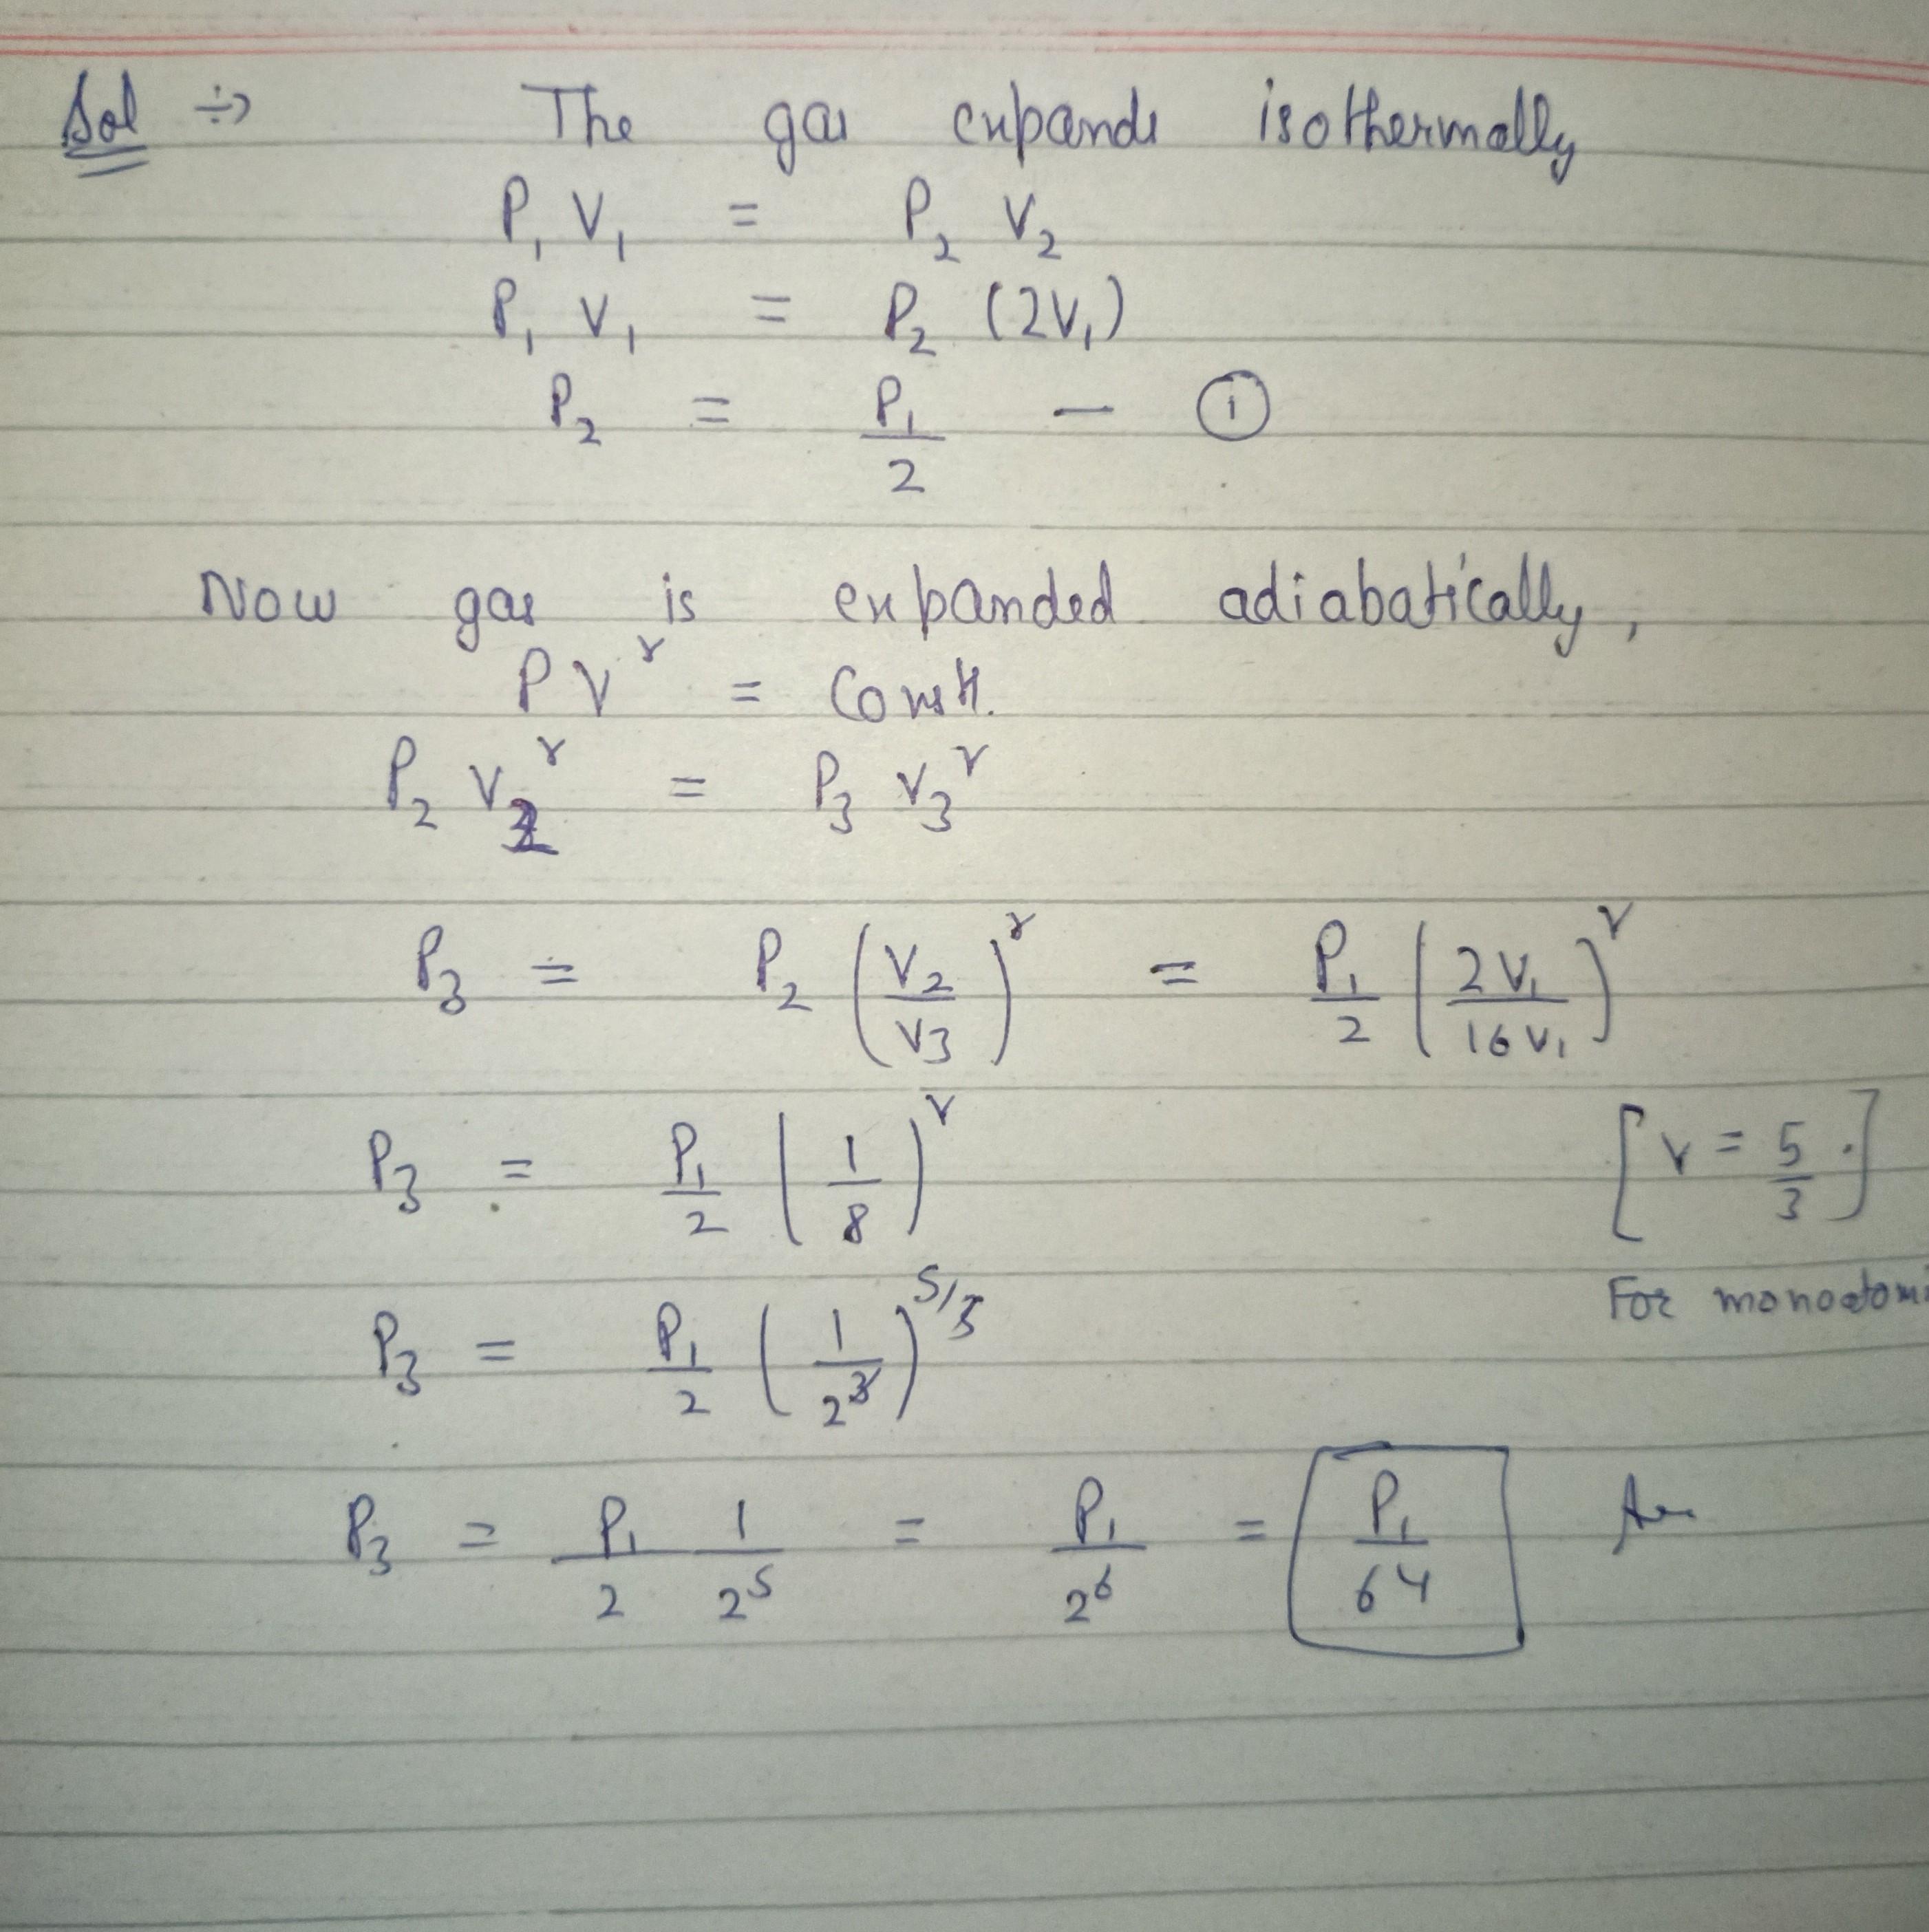 Sol ÷> The gas expands isothermally
P₁ V₁ = P₂ V₂
P₁ V₁ = P₂ (2V₁)
P₂ = P₁/2 — ①
Now gas is expanded adiabatically,
P V^γ = Constt.
P₂ V₂^γ = P₃ V₃^γ
P₃ = P₂ (V₂/V₃)^γ = P₁/2 (2V₁/16V₁)^γ
P₃ = P₁/2 (1/8)^γ [γ = 5/3.]
For monoatomi
P₃ = P₁/2 (1/2³)^5/3
P₃ = P₁/2 1/2⁵ = P₁/2⁶ = P₁/64 Ans